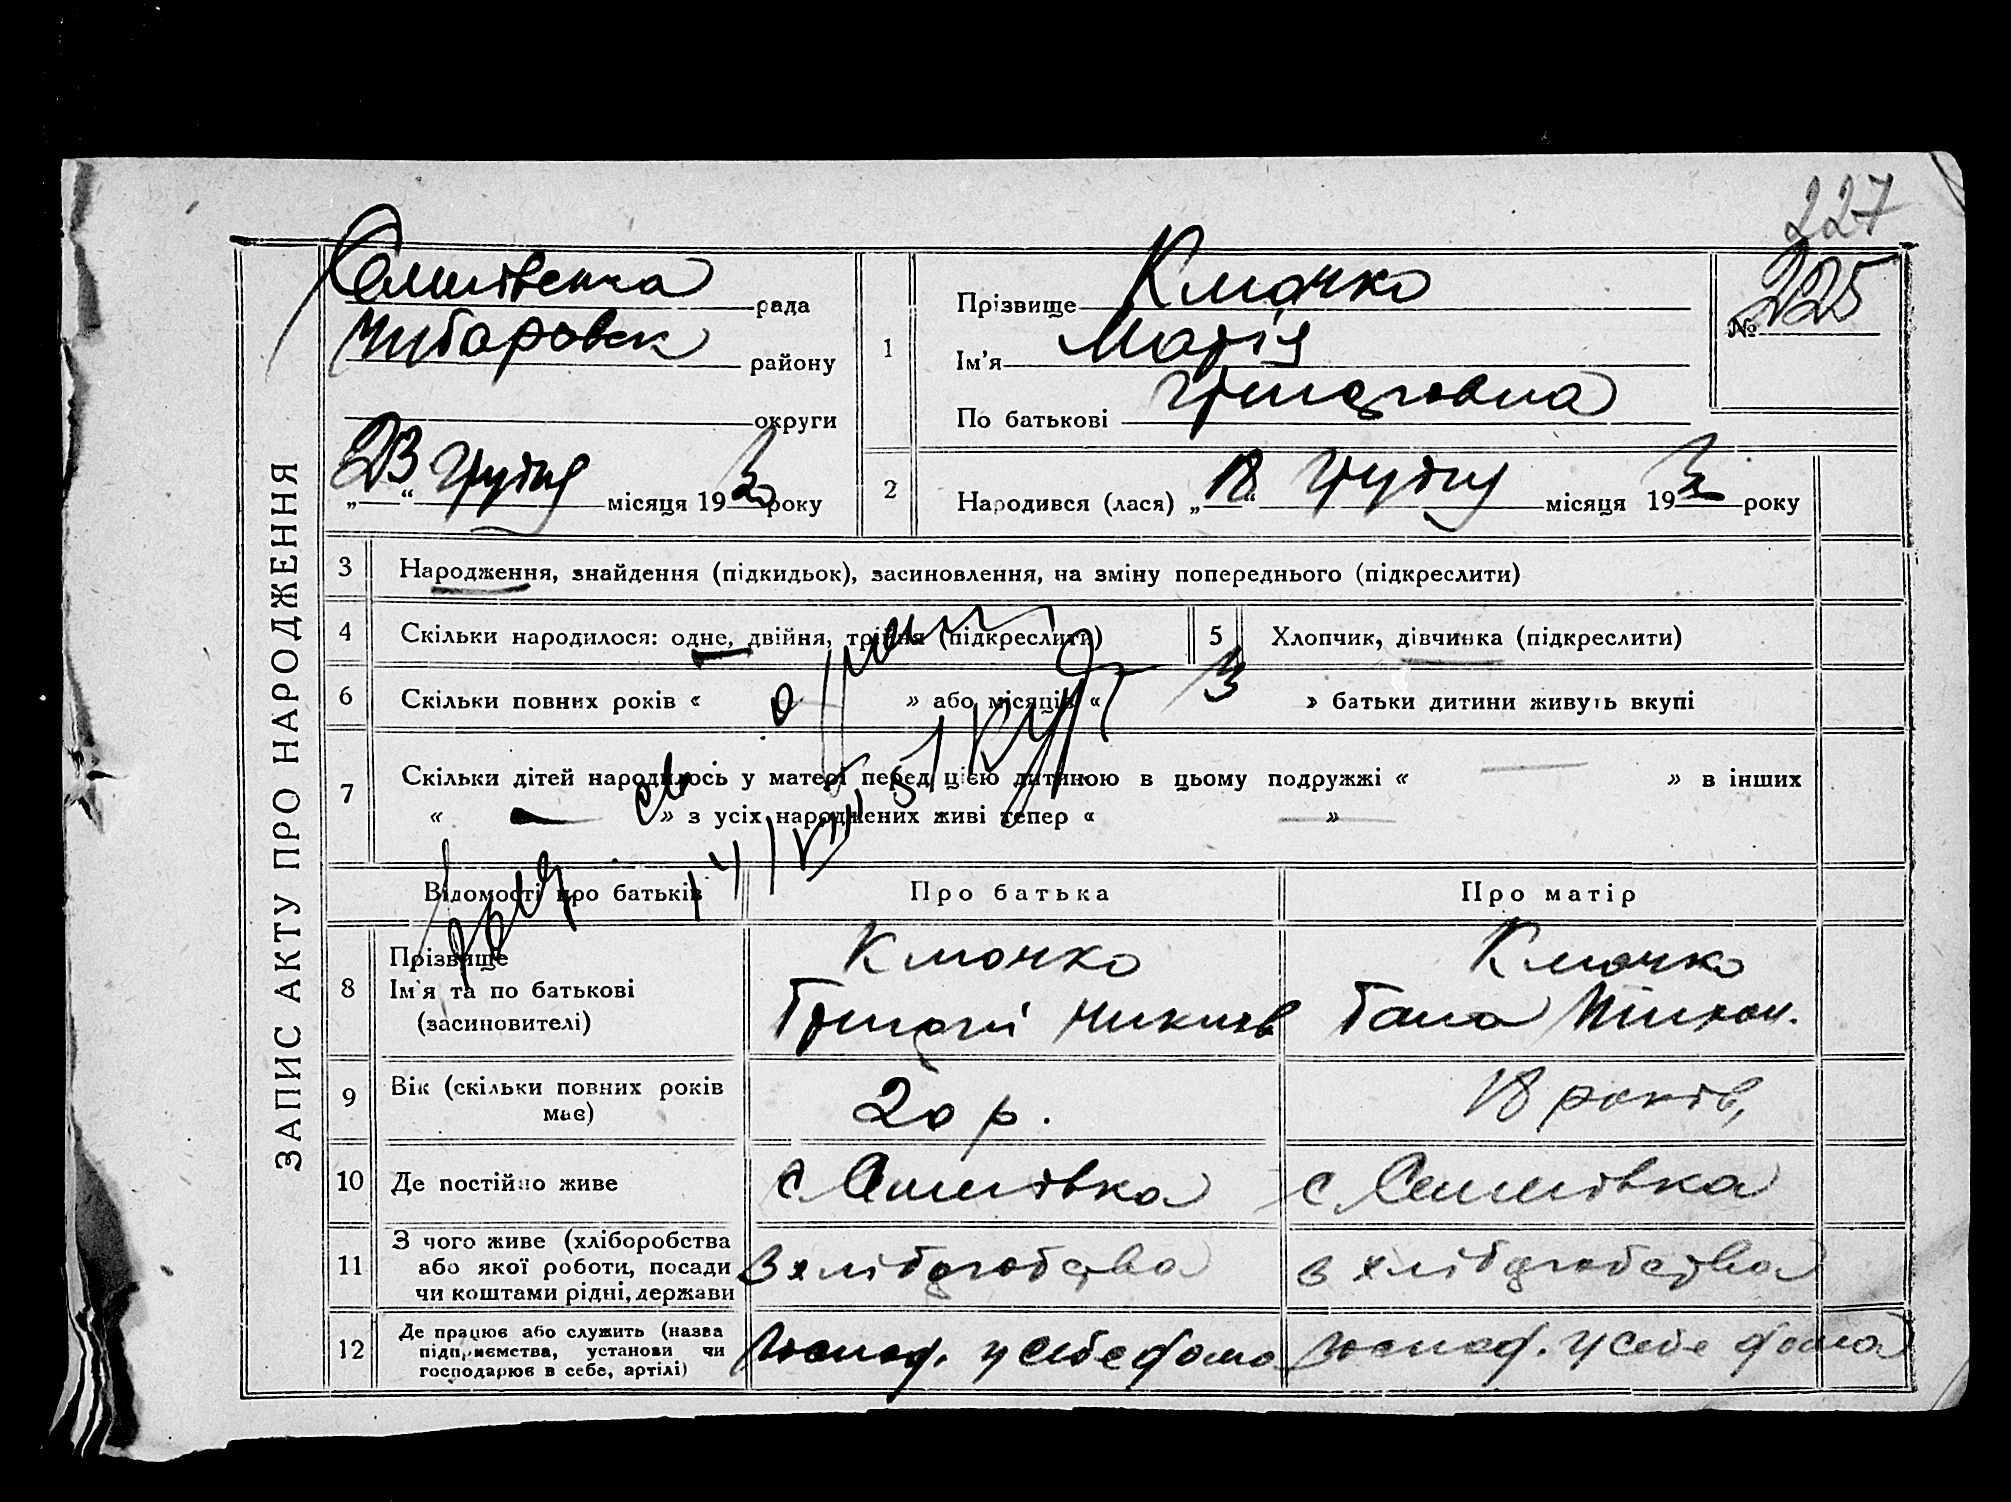 227
ЗАПИС АКТУ ПРО НАРОДЖЕННЯ
рада
району
округи
„23“ Грудня місяця 193 року
1
Прізвище Клочко
Ім'я Марія
По батькові Григоровна
№ 225
2
Народився (лася) „18“ Грудня місяця 193 року
3 Народження, знайдення (підкидьок), засиновлення, на зміну попереднього (підкреслити)
4 Скільки народилося: одне, двійня, трійня (підкреслити)
5 Хлопчик, дівчинка (підкреслити)
6 Скільки повних років « » або місяців « 3 » батьки дитини живуть вкупі
7 Скільки дітей народилось у матері перед цією дитиною в цьому подружжі « — » в інших
« — » з усіх народжених живі тепер « — »
Відомості про батьків
Про батька
Про матір
8 Прізвище
Ім'я та по батькові
(засиновителі)
Клочко
Григорі
Клочко
Гана
9 Вік (скільки повних років
має)
20 р.
18 років,
10 Де постійно живе
с
с
11 З чого живе (хліборобства
або якої роботи, посади
чи коштами рідні, держави
З хліборобства
з хліборобства
12 Де працює або служить (назва
підприємства, установи чи
господарює в себе, артілі)
господ. у себе дома
господ. у себе дома